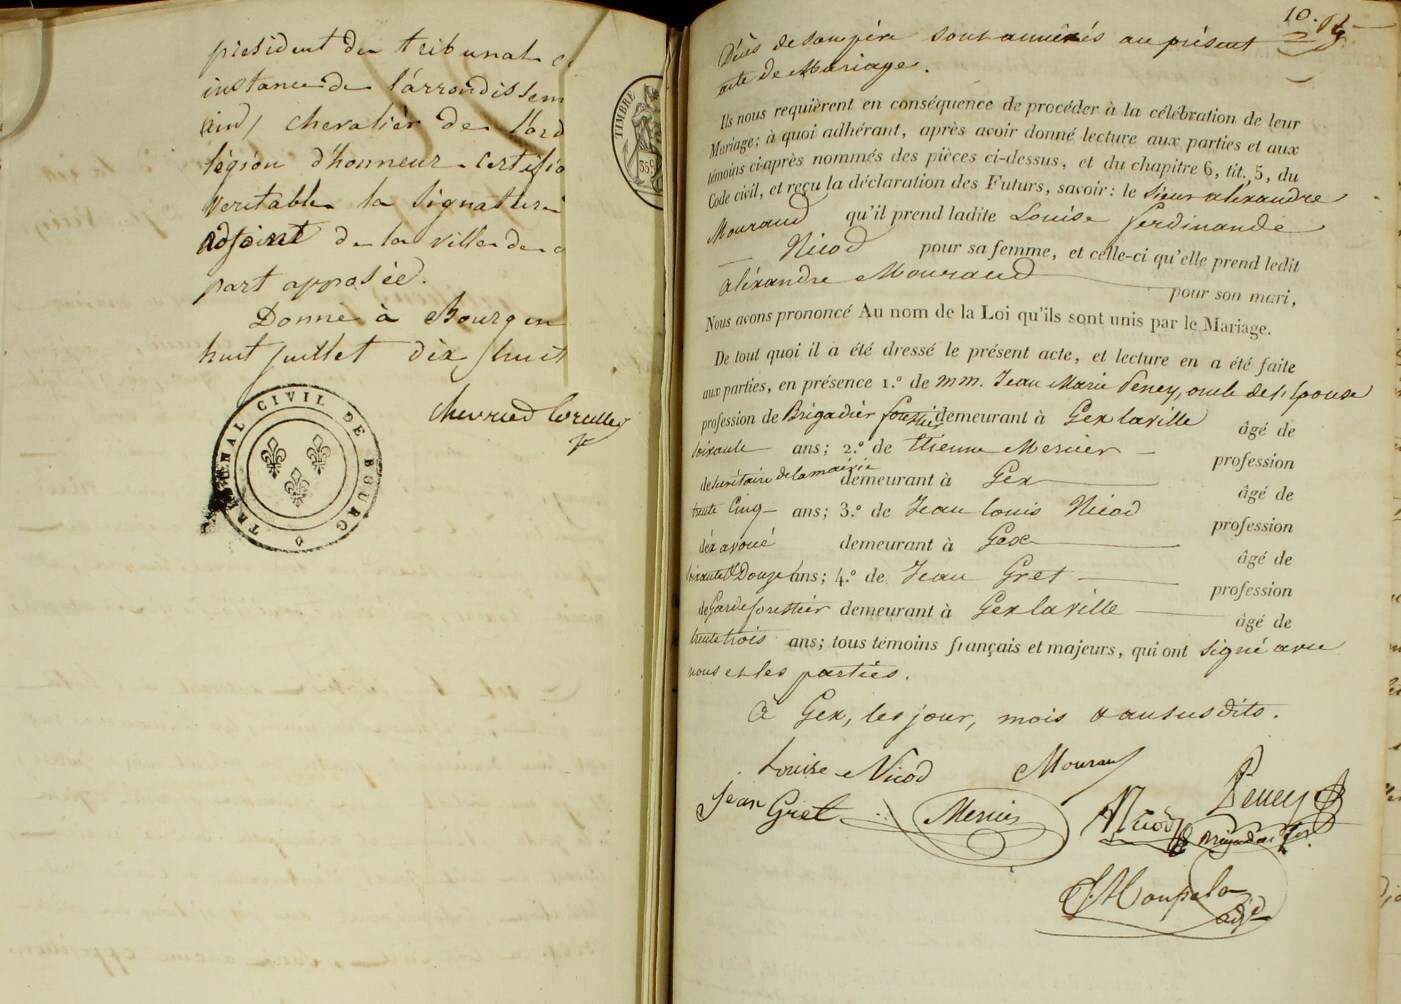 président du tribunal
instance de l'arrondissem
chevalier de l'ord
légion d'honneur certifie
veritable la signature
adjoint de la ville de
part apposée.
Donné à Bourg
huit juillet dix huit
TIMBRE
35
TRIBUNAL CIVIL DE BOURG
10.
Décès de son père sont annéxés au présent
acte de Mariage.
Ils nous requièrent en conséquence de procéder à la célébration de leur
Mariage; à quoi adhérant, après avoir donné lecture aux parties et aux
témoins ci-après nommés des pièces ci-dessus, et du chapitre 6, tit. 5, du
Code civil, et reçu la déclaration des Futurs, savoir: le sieur aléxandre
Mouraud qu'il prend ladite Louise ferdinande
Nicod pour sa femme, et celle-ci qu'elle prend ledit
aléxandre Mouraud pour son mari,
Nous avons prononcé Au nom de la Loi qu'ils sont unis par le Mariage.
De tout quoi il a été dressé le présent acte, et lecture en a été faite
aux parties, en présence 1.º de mm. Jean Marie Peney, oncle de l'Epouse
profession de Brigadier forestier demeurant à Gex la ville âgé de
soixante ans; 2.º de Etienne Mercier profession
de secrétaire de la mairie demeurant à Gex âgé de
trente Cinq ans; 3.º de Jean Louis Nicod profession
d'éx avoué demeurant à Gex âgé de
soixante et Douze ans; 4.º de Jean Gret profession
de Garde forestier demeurant à Gex la ville âgé de
trente trois ans; tous témoins français et majeurs, qui ont signé avec
nous et les parties.
à Gex, les jour, mois et an susdits.
Louise Nicod Mouraud
Jean Gret Mercier Nicod Peney